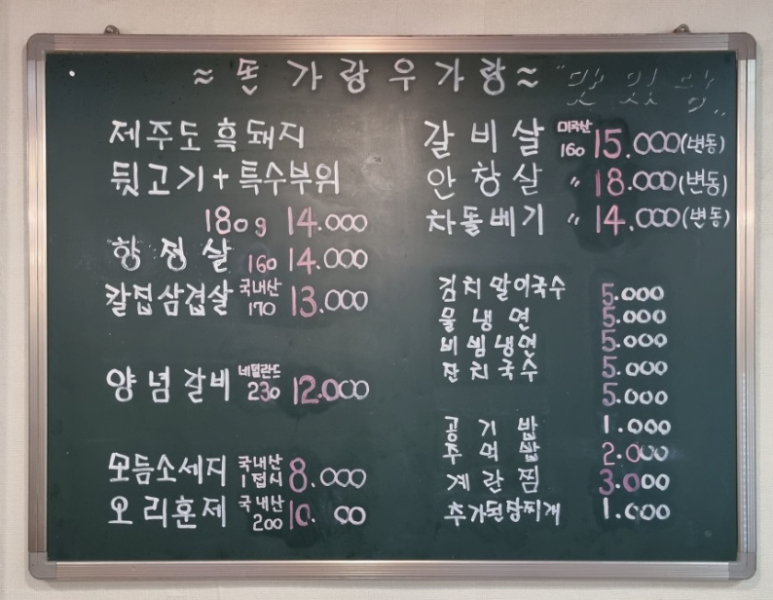 ≈ 돈 가랑우가랑 ≈ "맛 있 당"
제주도 흑돼지
뒷고기+특수부위
180g 14.000
항정살 160 14.000
칼집삼겹살 국내산 170 13.000
양념갈비 네덜란드 230 12.000
모듬소세지 국내산 1접시 8.000
오리훈제 국내산 200 10. 00
갈비살 미국산 160 15.000(변동)
안창살 〃 18.000(변동)
차돌베기 〃 14.000(변동)
김치말이국수 5.000
물냉면 5.000
비빔냉면 5.000
잔치국수 5.000
5.000
공기밥 1.000
주먹밥 2.000
계란찜 3.000
추가된장찌개 1.000